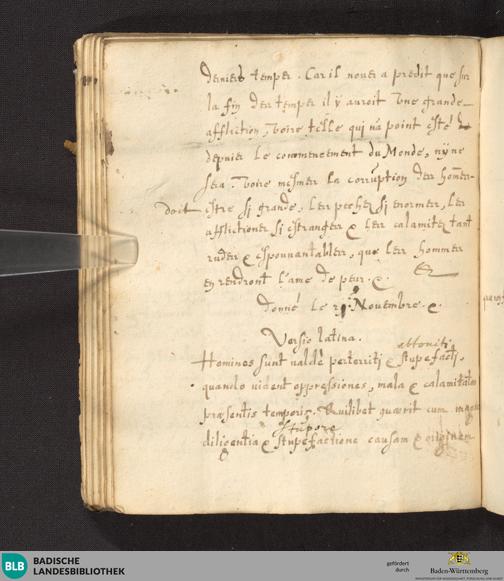 derniers temps. Car il nous a predit que sur
la fin des temps il ÿ auroit une grande
affliction, voire telle qui n'a point esté
depuis le commencement du Monde, nÿ ne
sera. Voire mesmes la corruption des hommes
doit estre si grande, les pechez si enormes, les
afflictions si estranges & les calamitez tant
rudes & espouvantables, que les hommes
en rendront l'ame de peur. &.
donné le Novembre. &.
Versio latina.
attoniti
Homines sunt valdè perterriti & stupefacti,
quando vident oppressiones, mala & calamitates
præsentis temporis. Quilibet quærit cum magna
stupore
diligentia & stupefactione causam & originem
BLB BADISCHE LANDESBIBLIOTHEK
gefördert durch
Baden-Württemberg